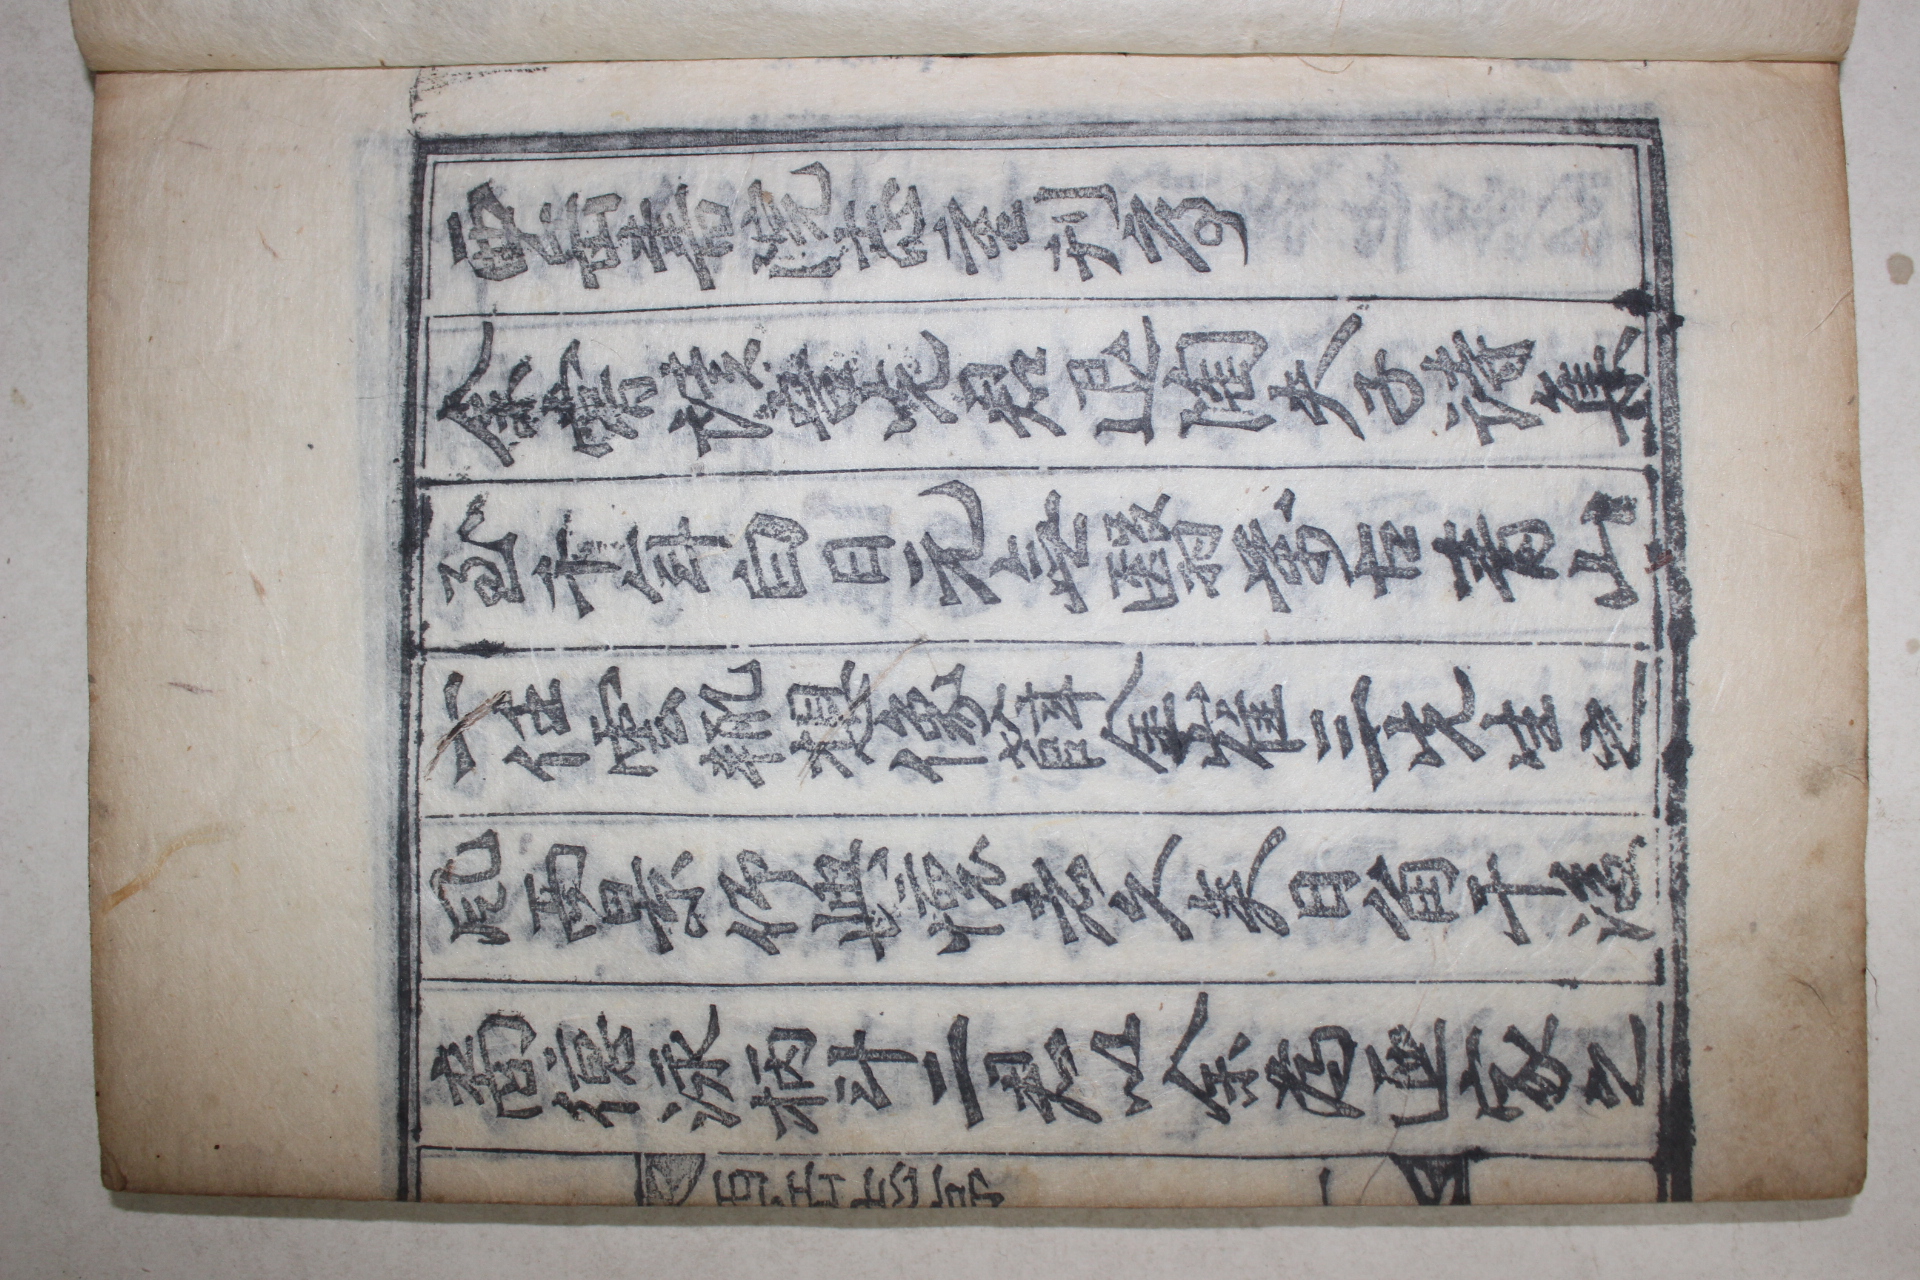 西岳書院志重刊序
余嘗讀吾先君退陶夫子詩集
至千年白日元無翳萬古青山
一任雲輒想像薛金崔三先生之
風而景仰興懷者久矣日角干後
裔德泳柄斗二君以余爲通家之
西岳志序
一